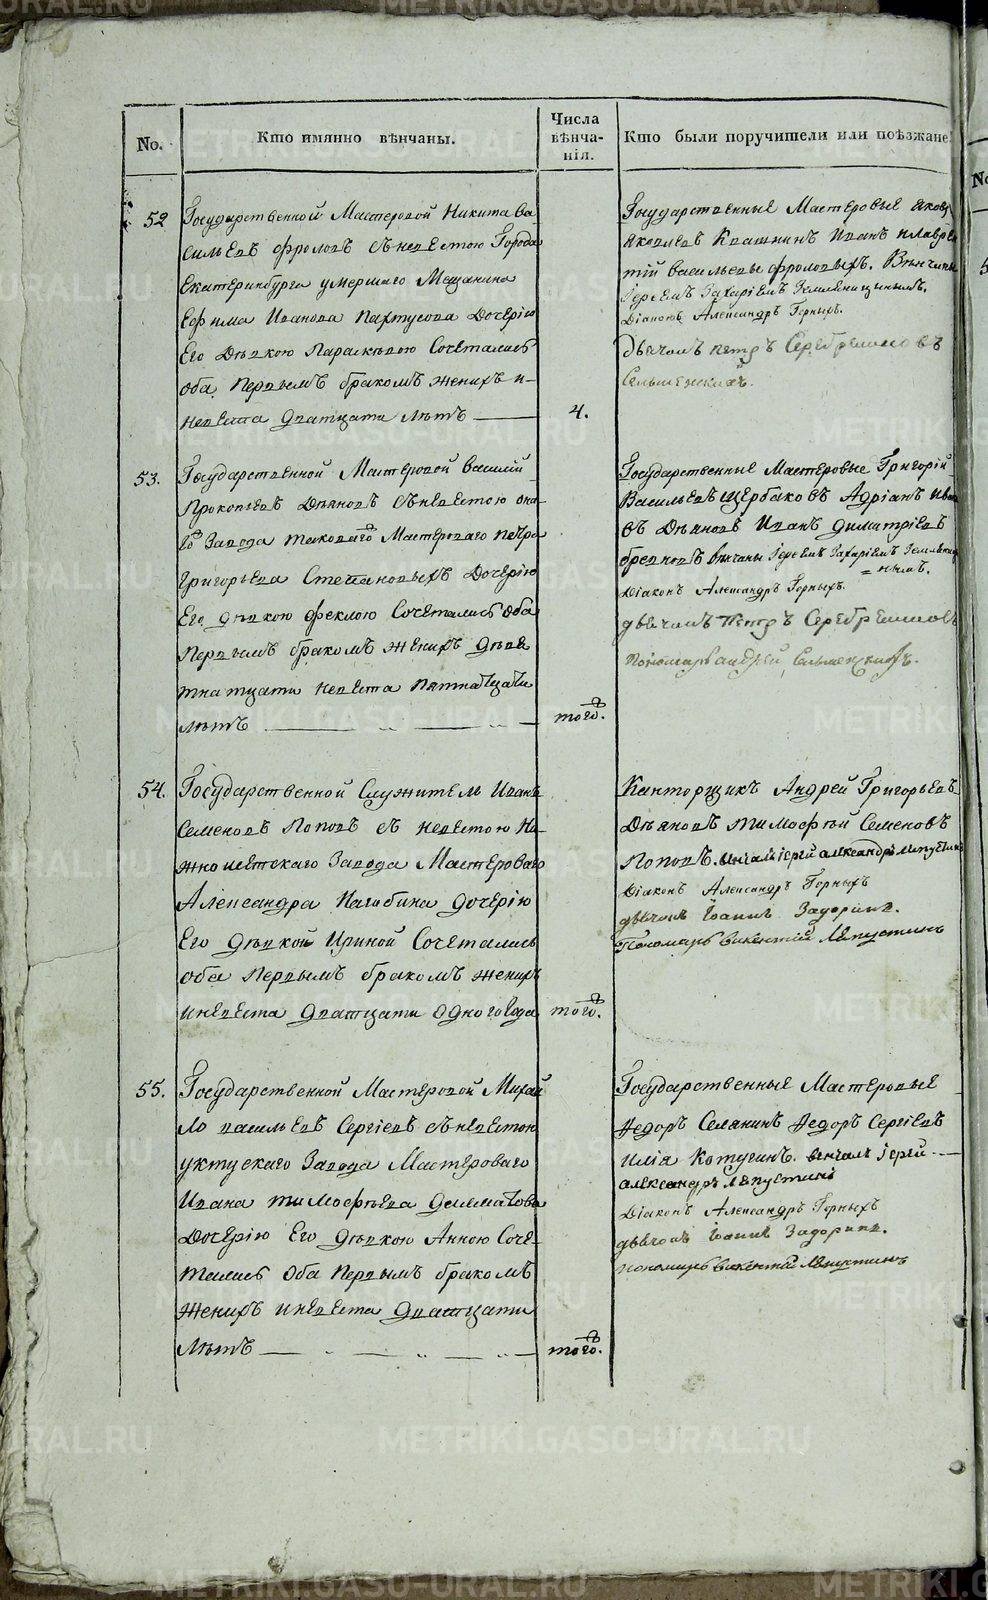 No.
Кто имянно вѣнчаны.
Числа
вѣнча-
нія.
Кто были поручители или поѣзжане.
52
Государственной Мастеровой Никита Ва
сильевъ Фроловъ съ невестою Города
Екатеринбурга умершаго Мещанина
Ефима Иванова Пахтусова Дочерію
Его Дѣвкою Параскѣвою Сочетались
оба Первымъ бракомъ жених и
невеста Дватцати лѣтъ
4.
Государственные Мастеровые Яковъ
Яковлевъ Иванъ и Лаврен
тій Васильевы Фроловыхъ. Вѣнчаны
Іереемъ Захаріемъ Земляницынымъ.
Діаконъ Александръ Горныхъ.
дьячокъ петръ Серебренниковъ
53.
Государственной Мастеровой Василій
Прокопьевъ Дѣяновъ съ невестою она
го Завода таковаго Мастероваго Петра
Григорьева Степановыхъ Дочерію
Его дѣвкою Феклою Сочетались Оба
Первымъ бракомъ жених Девя
тнатцати невеста Пятнатцати
лѣтъ
того.
Государственные Мастеровые Григорій
Васильевъ Щербаковъ Адріанъ Ивано
въ Дѣяновъ Иванъ Димитріевъ
вѣнчаны Іереемъ Захаріемъ Земляницы
= нымъ.
Діаконъ Александръ Горныхъ.
дьячокъ Петръ Серебренниковъ
Пономарь андрей
54.
Государственной Служитель Иванъ
Семеновъ Поповъ съ невестою Ни-
жноисетскаго Завода Мастероваго
Александра Нагибина дочерію
Его дѣвкой Ириной Сочетались
оба Первымъ бракомъ жених
и невеста Дватцати одного года
того.
Канторщикъ Андрей Григорьевъ
Дѣяновъ Тимофѣй Семеновъ
Поповъ. Венчалъ іерей александръ лепустинъ
Діаконъ Александръ Горныхъ
дьячокъ Іоаннъ Задоринъ.
Пономарь викентій Лепустинъ
55.
Государственной Мастеровой Михай
ло Васильевъ Сергіевъ съ невестою
уктускаго Завода Мастероваго
Ивана Тимофѣева
Дочерію Его Дѣвкою Анною Соче-
тались Оба Первымъ бракомъ
Женихъ и невеста Дватцати
лѣтъ
того.
Государственные Мастеровые
Федоръ Селянинъ Федоръ Сергіевъ
Илія Котугинъ. венчалъ іерей
александръ лепустинъ
Діаконъ Александръ Горныхъ
дьячокъ Іоаннъ Задоринъ.
пономарь викентій Лепустинъ
METRIKI.GASO-URAL.RU